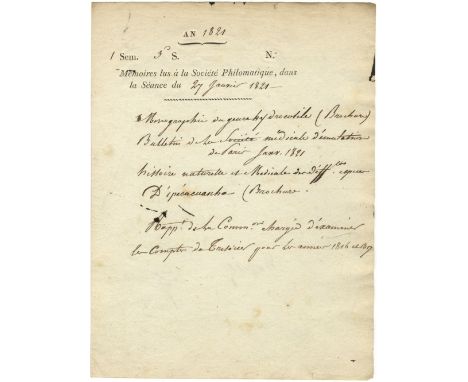 AN 1821
1 Sem. 3e S. N.
Mémoires lus à la Société Philomatique, dans
la Séance du 27 Janvier 1821
Monographie du genre hydrocotile (Brochure)
Bulletin de la Société médicale d'émulation
de Paris Janv. 1821
histoire naturelle et Médicale des diff.tes espèces
D'ipécacuanha (Brochure.
Rapp.t de la Comm.on chargée d'éxaminer
les Comptes du Trésorier pour les années 1816 et